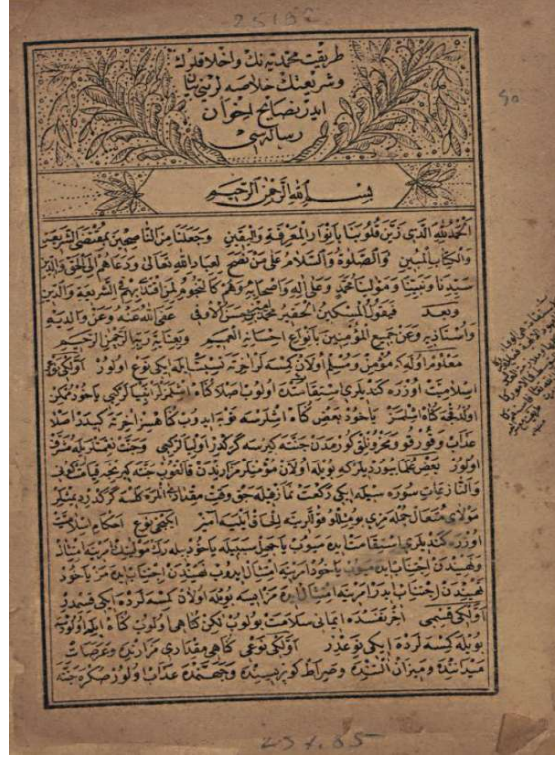 طريقت محمديه نك واخلاقلرك
وشريعتك خلاصه لرينى بيان
ايدر نصايح اخوان
رساله سى
بسم الله الرحمن الرحيم
الحمد لله الذى زين قلوبنا بانوار المعرفة واليقين وجعلنا من الناصحين بمقتضى الشريعة
والكتاب المبين والصلوة والسلام على من نصح لعباد الله تعالى ودعاهم الى الحق والدين
سيدنا ونبينا ومولينا محمد وعلى اله واصحابه وهم كالنجوم لمن اقتدى بهم فى الشريعة والدين
وبعد فيقول المسكين الحقير محمد بن حسن عفى الله عنه وعن والديه
واستاذيه وعن جميع المؤمنين بانواع احسانه العميم وبعناية ربنا الرحمن الرحيم
معلوم اوله كه مؤمن ومسلم اولان كمسه لر اخرته نسبت ايله ايكى نوع اولور اولكى نوع
اسلاميت اوزره كنديلرى استقامتده اولوب اصلا كناه اشلمز انبيا كبى ياخود ممكن
اولدقجه كناه اشلمز ياخود بعض كناه اشلرسه توبه ايدوب كناهسز اخرته كيدر اصلا
عذاب وقورقو كورمدن جنته كيرسه كركدر اوليا كبى وجنت نعمتلريله
اولور بعض علما بيورديلر كه بويله اولان مؤمنلر مزارلرندن قالقوب جنته كيرنجيه قدر
والنازعات سوره سيله ايكى ركعت نماز قيله جق وقت مقدارى انلره كلسه كركدر ديمشلر
مولاى متعال جمله مزى بو مثللو قوللرينه الحاق ايليه امين ايكنجى نوع احكام اسلاميت
اوزره كنديلرى استقامت ايده ميوب يا جهل سببيله ياخود بيله رك مولينك امرينه امتثال
ونهيندن اجتناب ايده ميوب ياخود امرينه امتثال ايدوب نهيندن اجتناب ايده مز ياخود
نهيندن اجتناب ايدر امرينه امتثال ايده مز ايسه بويله اولان كمسه لرده ايكى قسمدر
اولكى قسمى اخر نفسده ايمانى سلامت بولوب لكن كناهى اولوب
بويله كمسه لرده ايكى نوعدر اولكى نوعى كناهى مقدارى مزارنده وعرصات
ميداننده وميزان اننده وصراط كوپريسنده وجهنمده عذاب اولور صكره جنته